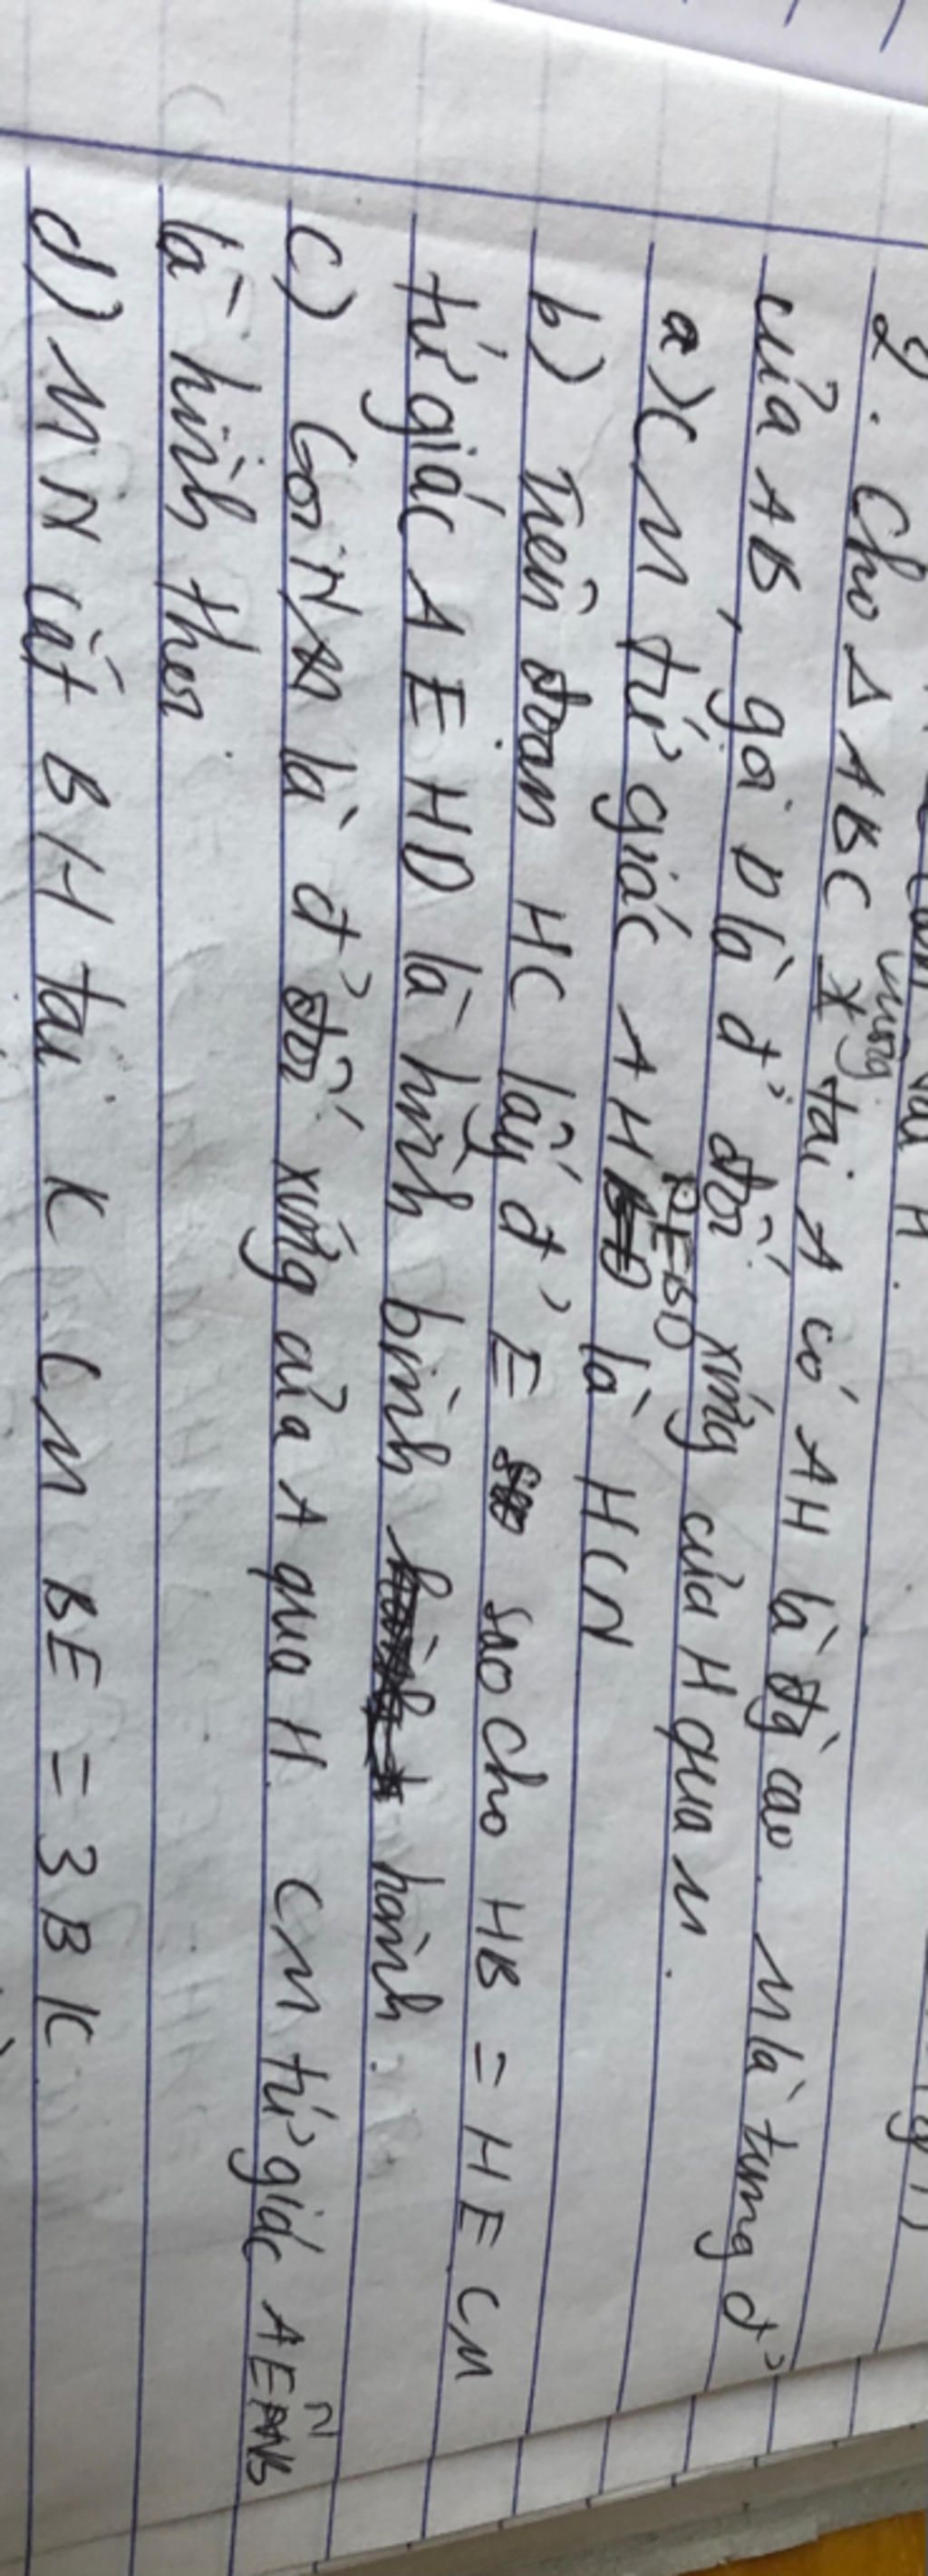 2. Cho Δ ABC vuông tại A có AH là đg cao. M là trung đ'
của AB, gọi D là đ' đối xứng của H qua M.
a) CM tứ giác AHBD là HCN
b) Trên đoạn HC lấy đ' E sao cho HB = HE CM
tứ giác AEHD là hình bình hành.
c) Gọi N là đ' đối xứng của A qua H. CM tứ giác AENB
là hình thoi.
d) MN cắt BH tại K CM BE = 3BK